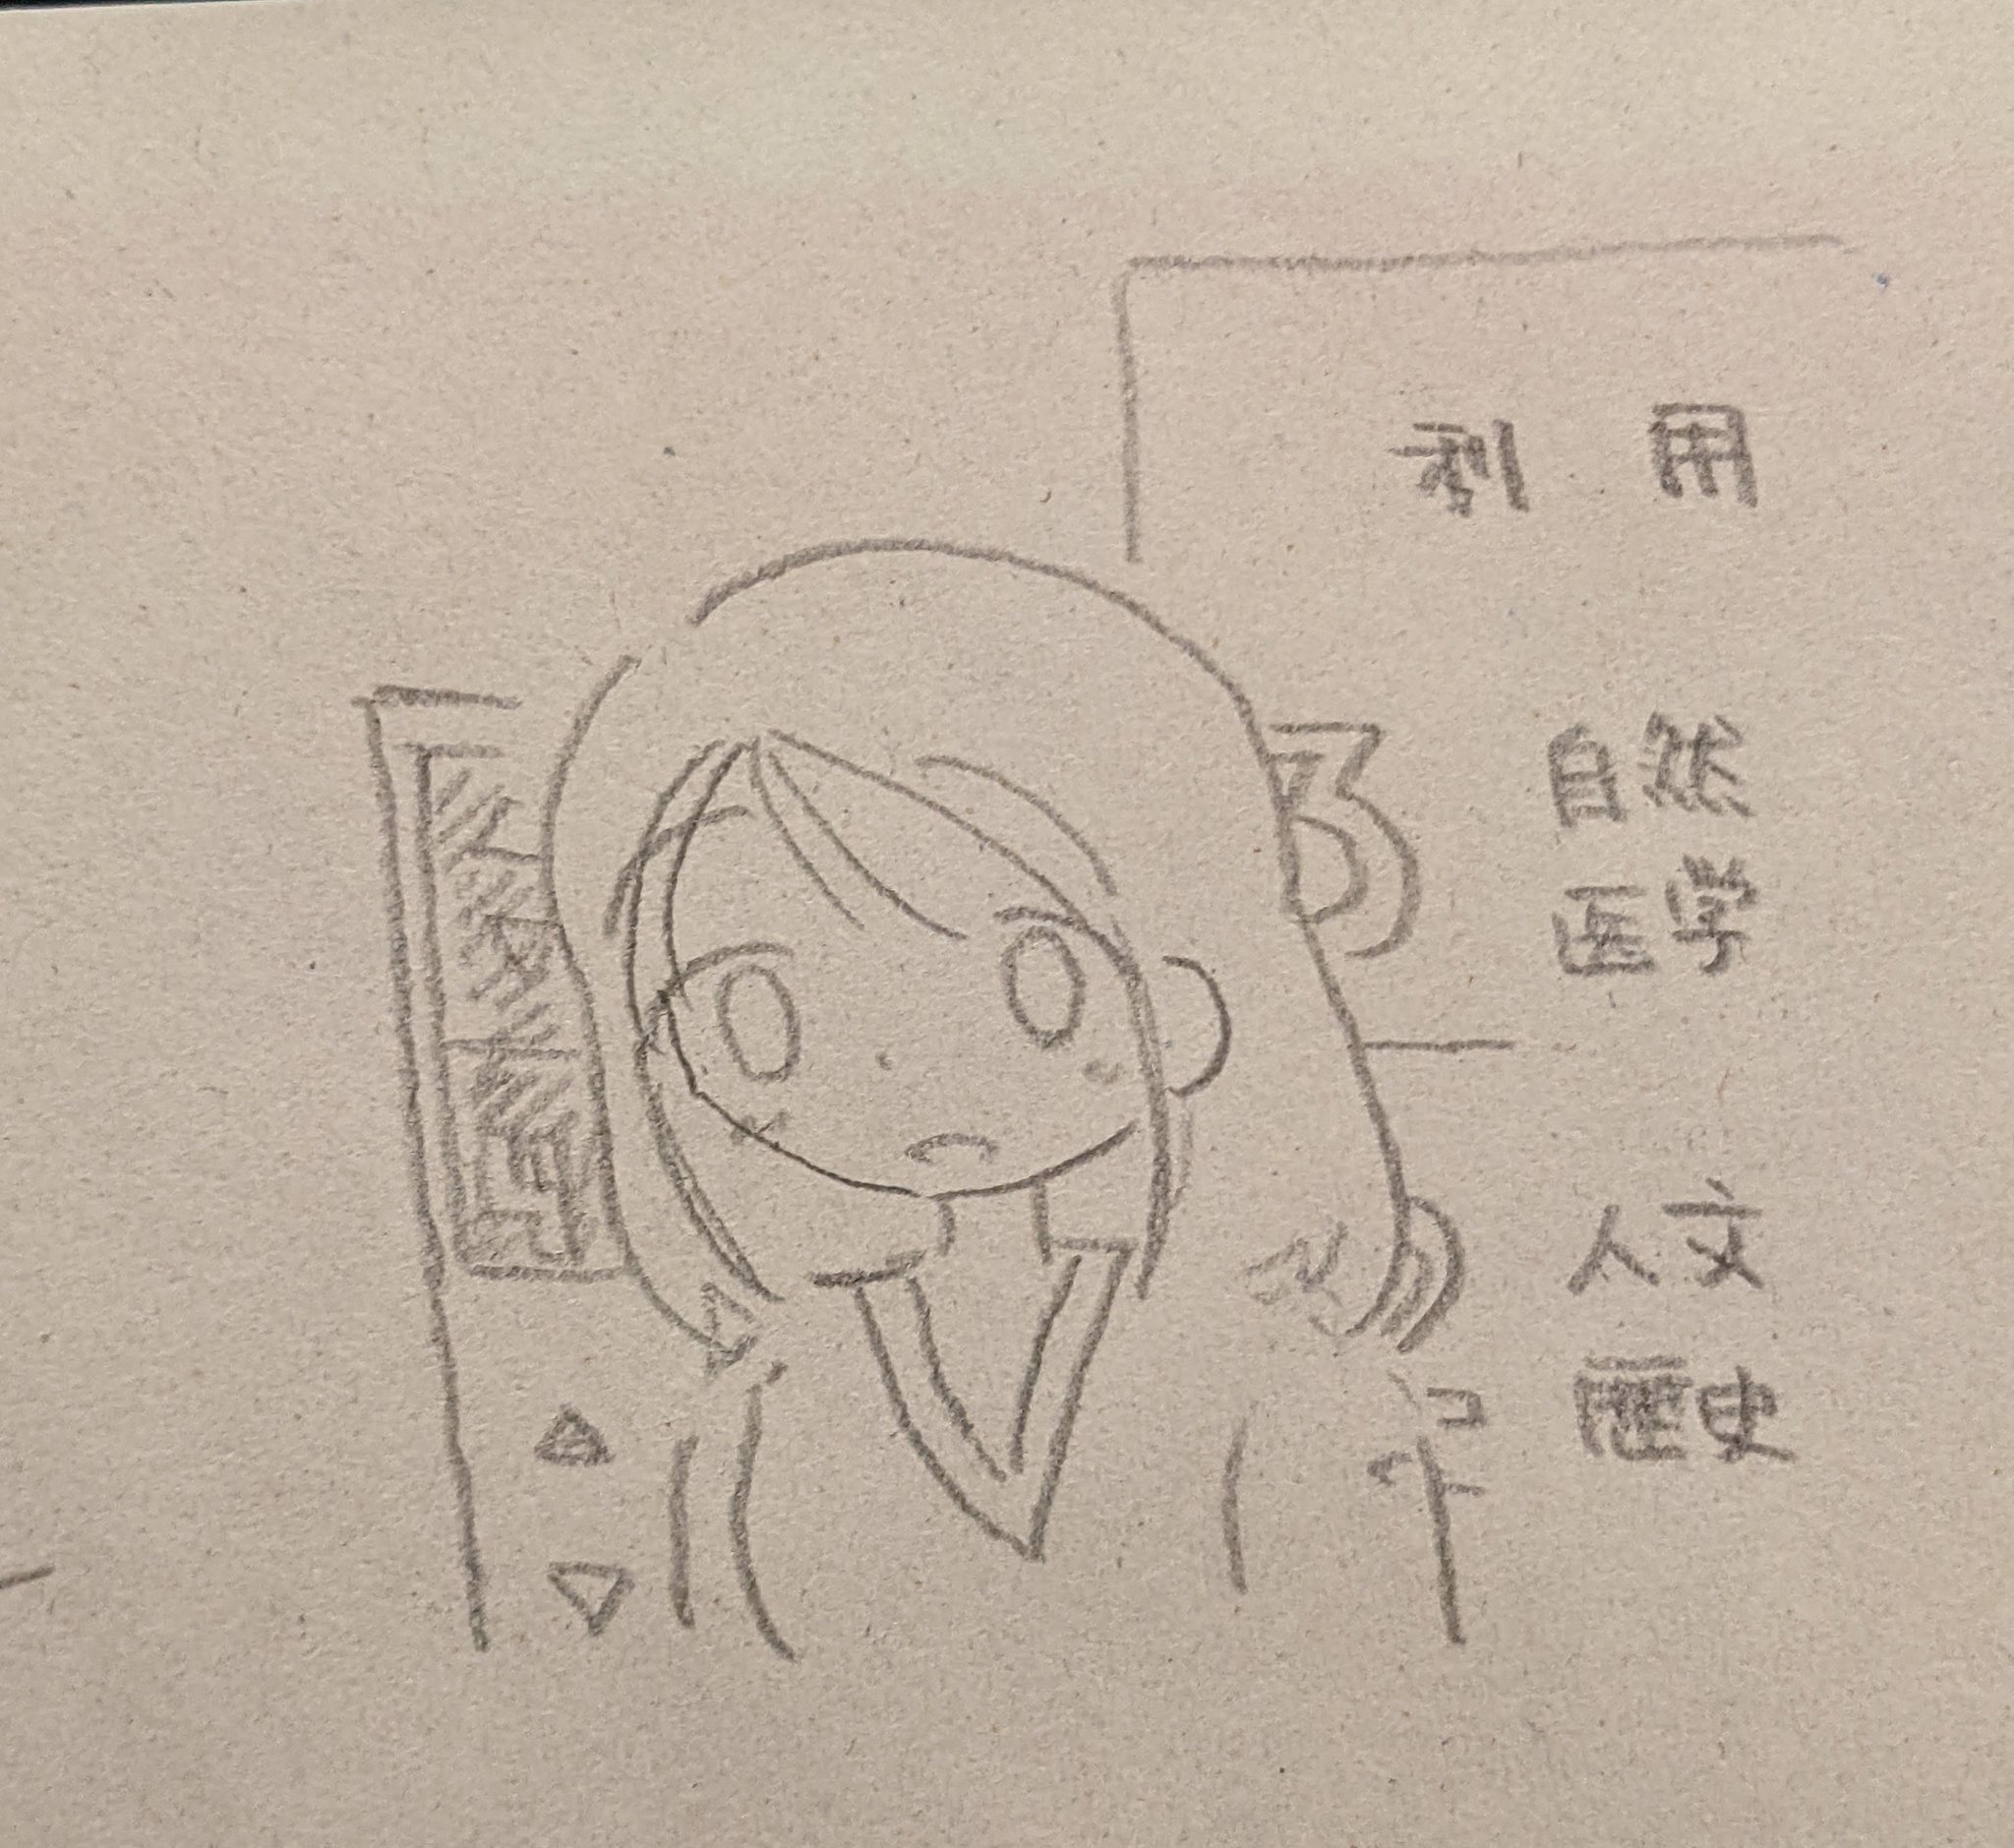 利用
3
自然
医学
人文
歴史